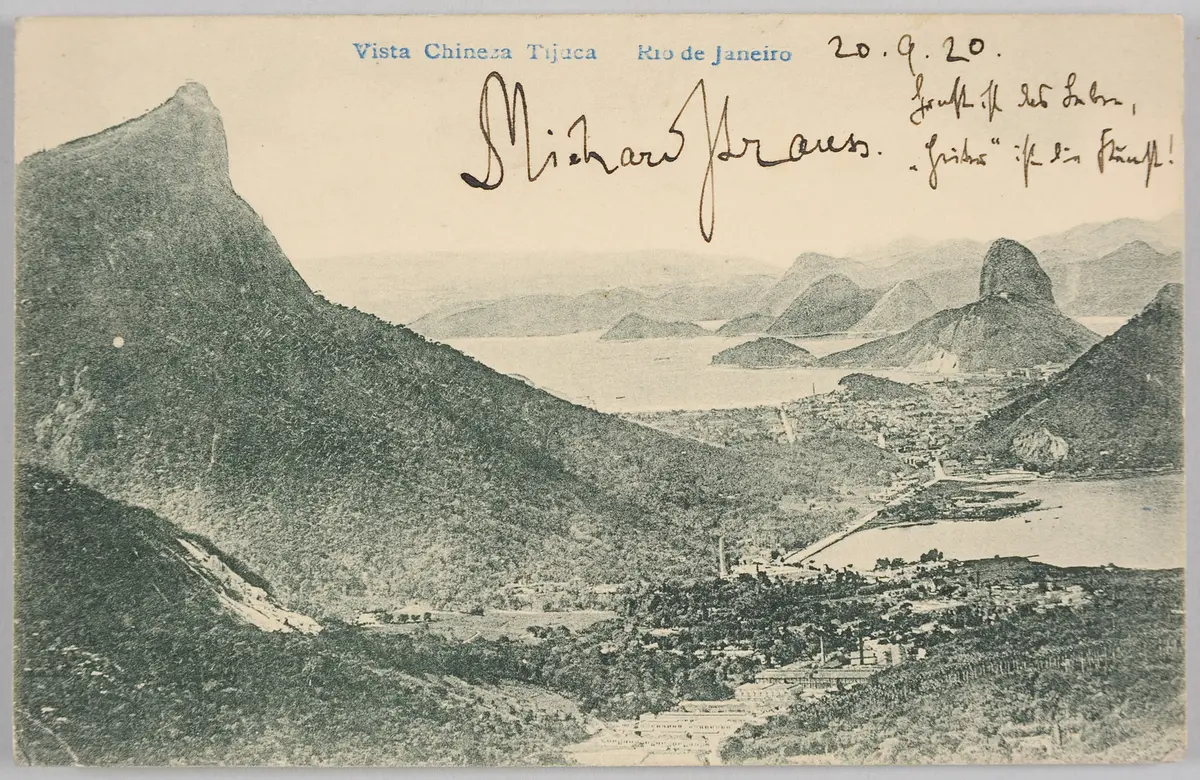 Vista Chineza Tijuca Rio de Janeiro
20.9.20.
Ernst ist das Leben,
„Heiter“ ist die Kunst!
Richard Strauss.